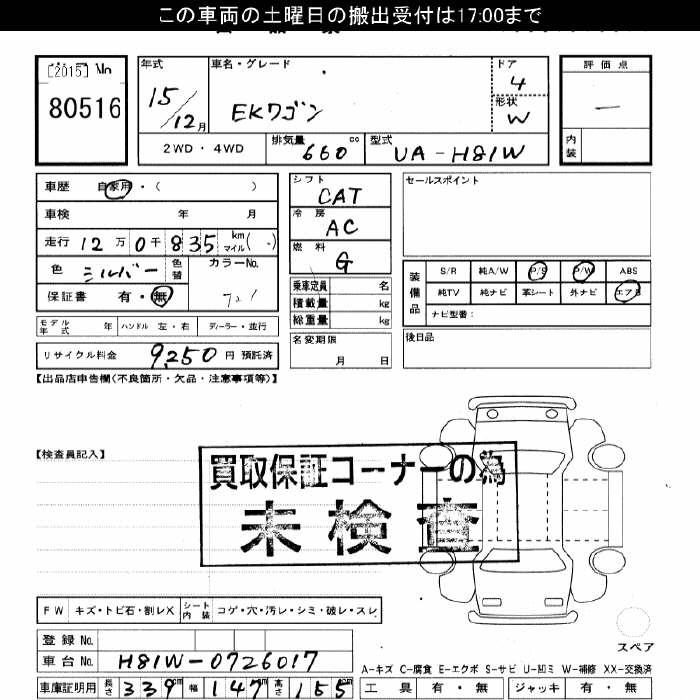 この車両の土曜日の搬出受付は17:00まで
[2015] No
80516
年式
15/12月
車名・グレード
EKワゴン
ドア
4
形状
W
評価点
―
内装
2WD・4WD
排気量 660 cc
型式 UA-H81W
車歴 自家用・( )
車検 年 月
走行 12万0千835 km マイル( )
色 シルバー 色替
カラーNo.
保証書 有・無
モデル年式 年 ハンドル 左・右 ディーラー・並行
リサイクル料金 9,250 円 預託済
シフト
CAT
冷房
AC
燃料
G
乗車定員 名
積載量 kg
総重量 kg
名変期限
月 日
セールスポイント
装備品
S/R 純A/W P/S P/W ABS
純TV 純ナビ 革シート 外ナビ エアB
ナビ型番:
後日品
【出品店申告欄(不良箇所・欠品・注意事項等)】
【検査員記入】
買取保証コーナーの為
未検査
FW キズ・トビ石・割レX シート内装 コゲ・穴・汚レ・シミ・破レ・スレ
登録No.
車台No. H81W-0726017
車庫証明用 長さ 339cm 幅 147cm 高さ 155cm
スペア
A-キズ C-腐食 E-エクボ S-サビ U-凹ミ W-補修 XX-交換済
工具 有・無 ジャッキ 有・無